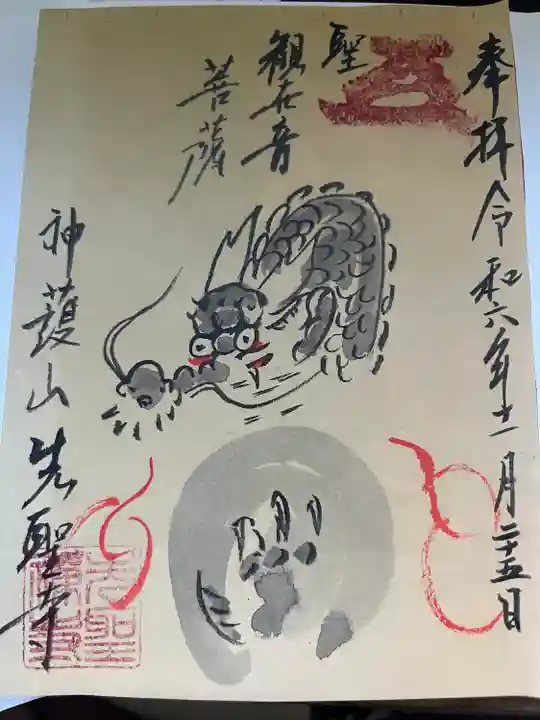 奉拝令和六年十一月二十五日
聖
観世音
菩薩
神護山先聖寺